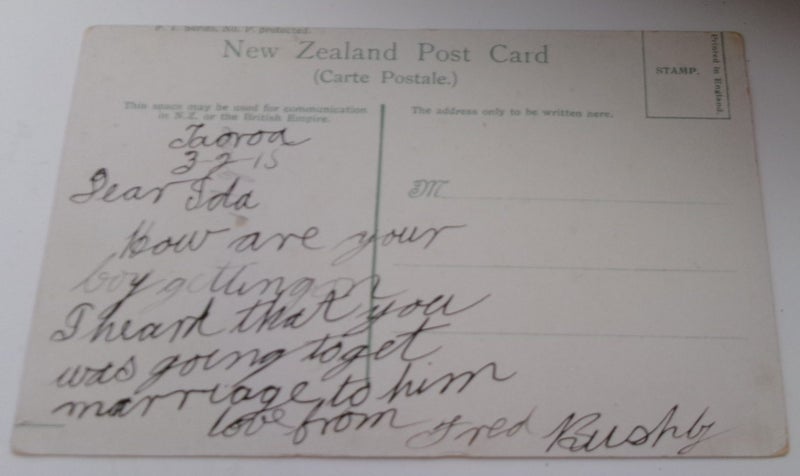 P. T. Series, No. P. protected.
New Zealand Post Card
(Carte Postale.)
STAMP.
Printed in England.
This space may be used for communication
in N.Z. or the British Empire.
The address only to be written here.
Taoroa
3-2-15
Dear Ida
M
How are your
boy getting on
I heard that you
was going to get
marriage to him
love from Fred Bushby